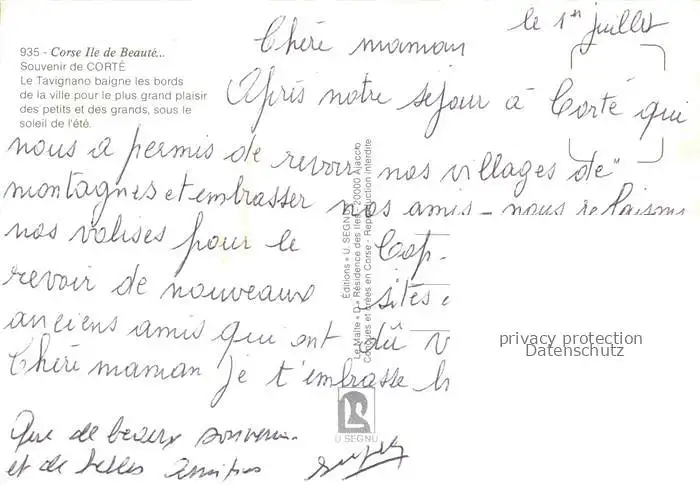 935 - Corse Ile de Beauté...
Souvenir de CORTÉ
Le Tavignano baigne les bords
de la ville pour le plus grand plaisir
des petits et des grands, sous le
soleil de l'été.
le 1er juillet
Chère maman
Après notre séjour à Corté qui
nous a permis de revoir nos villages de
montagnes et embrasser nos amis - nous refaisons
nos valises pour le Cap.
revoir de nouveaux sites
anciens amis qui ont dû
Chère maman je t'embrasse
Que de beaux souvenirs
et de belles amitiés
Éditions « U. SEGNU »
Le Malte « D » Résidence des Iles 20000 Ajaccio
Conçues et créées en Corse - Reproduction interdite
U SEGNU
privacy protection
Datenschutz